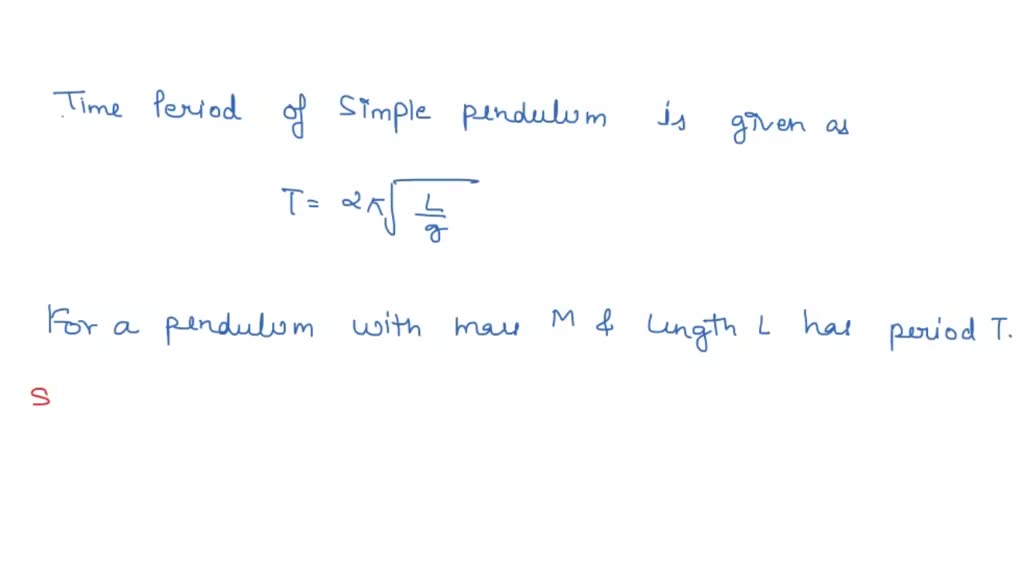 Time Period of Simple pendulum is given as
T = 2π√(L/g)
For a pendulum with mass M & Length L has period T.
S